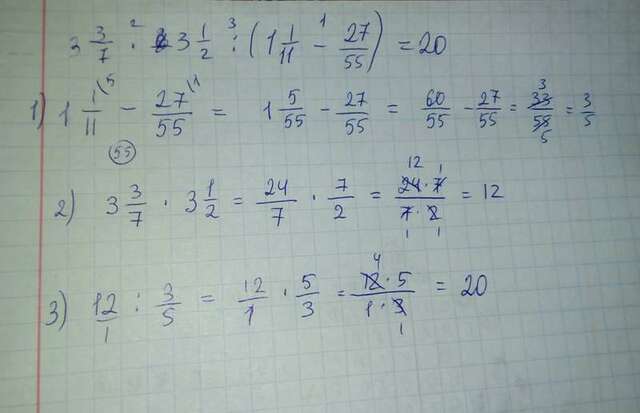 3 3/7 · 3 1/2 : (1 1/11 − 27/55) = 20
1) 1 1/11 − 27/55 = 1 5/55 − 27/55 = 60/55 − 27/55 = 33/55 = 3/5
55
2) 3 3/7 · 3 1/2 = 24/7 · 7/2 = 24·7/7·2 = 12
3) 12/1 : 3/5 = 12/1 · 5/3 = 12·5/1·3 = 20